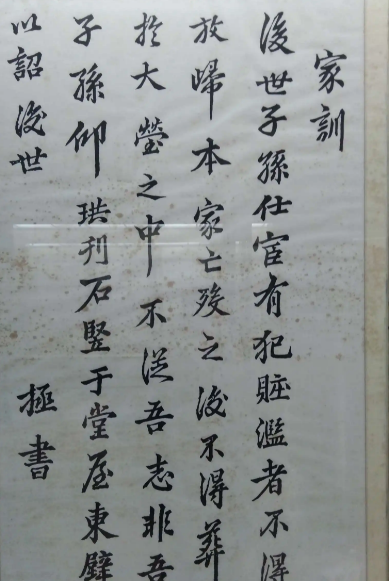 家訓
後世子孫仕宦有犯賍濫者不得
放歸本家亡殁之後不得葬
於大塋之中不從吾志非吾
子孫仰珙刊石竪于堂屋東壁
以詔後世
極書